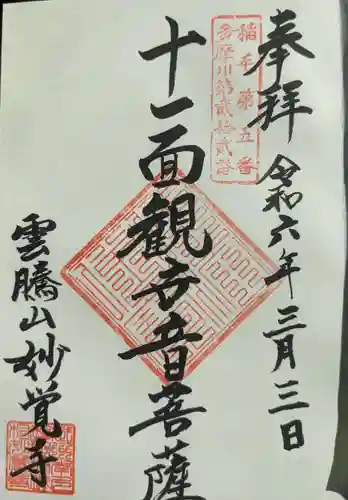 奉拝　令和六年三月三日
稲毛第五番
多摩川第弐拾弐番
十一面観世音菩薩
雲騰山妙覚寺